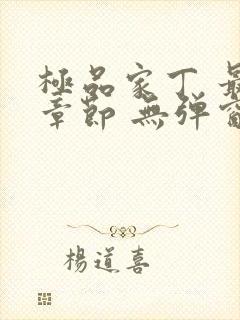 極品家丁 最
章節 無彈窗
楊道喜